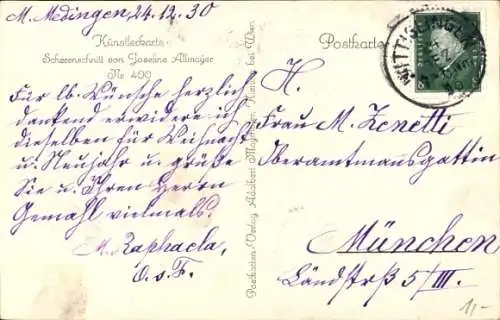 M. Medingen, 24.12.30
Künstlerkarte
Scherenschnitt von Josefine Allmayer
Nr 400
Für lb. Wünsche herzlich
dankend erwidere ich
dieselben für Weihnacht
u. Neujahr u. grüße
Sie u. Ihren Herrn
Gemahl vielmals.
M. Raphaela,
O.S.F.
Postkarten-Verlag Adalbert bei Wien
Postkarte
MITTISLINGEN
H.
Frau M. Zenetti
Oberamtmannsgattin
München
Ländstrß 5/III.
1,-